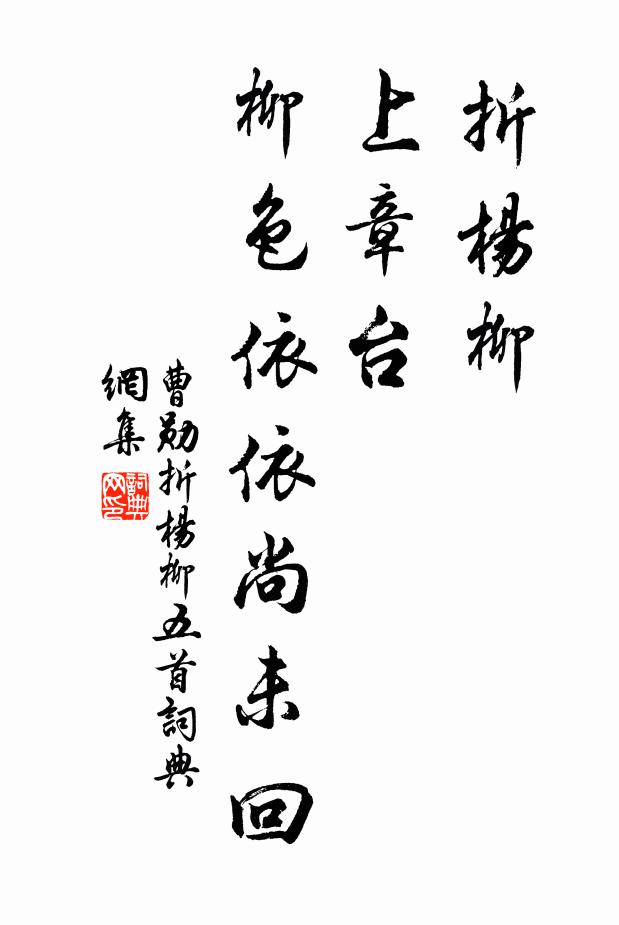 折楊柳
上章台
柳色依依尚未回
曹勛折楊柳五首詞典
網集
詞典
网印